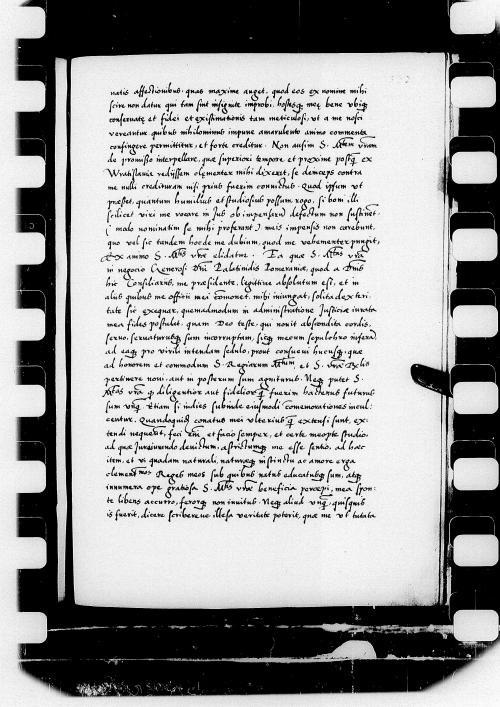 natis affectionibus, quas maxime auget, quod eos ex nomine mihi
scire non datur qui tam sint insigniter improbi, hostesq; meę bene ubiq;
conservatę et fidei et existimationis tam meticulosi, ut a me nosci
vereantur quibus nihilominus impune amarulento animo commenta
confingere permittitur, et forte creditur. Non ausim S. Mtem vram
de promisso interpellare, quae superiori tempore et proxime postq; ex
Wratislavia redijssem clementer mihi dixerat, se deinceps contra
me nulli credituram nisi prius fuerim convictus. Quod ipsum ut
praestet, quantum humilius et studiosius possum rogo, si boni illi
scilicet viri me vocare in Jus ob impensarum defectum non sustinent
( modo nominatim se mihi proferant ) meis impensis non carebunt,
quo vel sic tandem hocde me dubium, quod me vehementer pungit,
Ex animo S. Mtis vrae elidatur. Ea quae S. Mtas vra
in negocio Generosi Dni Palatinidis Pomeraniae, quod a Dnis
hic Consiliarijs, me praesidente, legittime absolutum est, et in
alijs quibus me officii mei commonet, mihi iniungat, solita dexteri
tate sic exequar, quemadmodum in administratione Justiciae iurata
mea fides postulat, quam Deo teste, qui novit abscondita cordis,
servo, servaturusq; sum incorruptam, sicq; mecum sepulchro inferam
ad eaq; pro virili intendam sedulo, prout consuevi hucusq; quae
ad honorem et commodum S. Regiarum Mtum, et S. vrae Rbus
pertinere novi, aut in posterum sum agniturus. Neq; putet S.
Mtas vra q; diligentior aut fidelior q; fuerim hactenus futurus
sum unq; Etiam si indies subinde eiusmodi comemorationes incul:
centur. Quandoquidem conatus mei ulterius q; extensi sunt, ex:
tendi nequeunt, feci enim et facio semper, et certe meopte studio,
ad quae Jureiurando devinctum, astrictumq; me esse sentio, ad haec
item, et vi quadam naturali, naturaeq; instinctu ac amore erga
clementmos Reges meos sub quibus natus educatusq; sum, atq;
innumera ope gratiosa S. Mtis vrae beneficia percepi, mea spon:
te libens accurro, ferorq; non invitus. Neq; aliud unq; quisquis
is fuerit, dicere scribereve illesa veritate poterit, quae me ut tutata